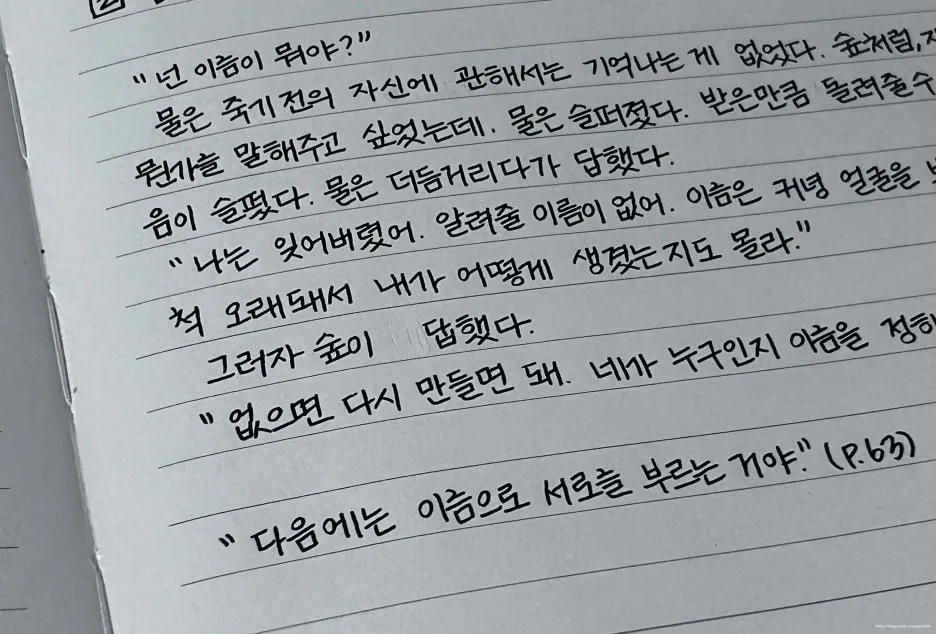 "넌 이름이 뭐야?"
물은 죽기 전의 자신에 관해서는 기억나는 게 없었다. 숲처럼,
뭔가를 말해주고 싶었는데. 물은 슬퍼졌다. 받은만큼 돌려줄수
음이 슬펐다. 물은 더듬거리다가 답했다.
"나는 잊어버렸어. 알려줄 이름이 없어. 이름은 커녕 얼굴을
척 오래돼서 내가 어떻게 생겼는지도 몰라."
그러자 숲이 답했다.
"없으면 다시 만들면 돼. 네가 누구인지 이름을 정하
"다음에는 이름으로 서로를 부르는 거야." (P.63)